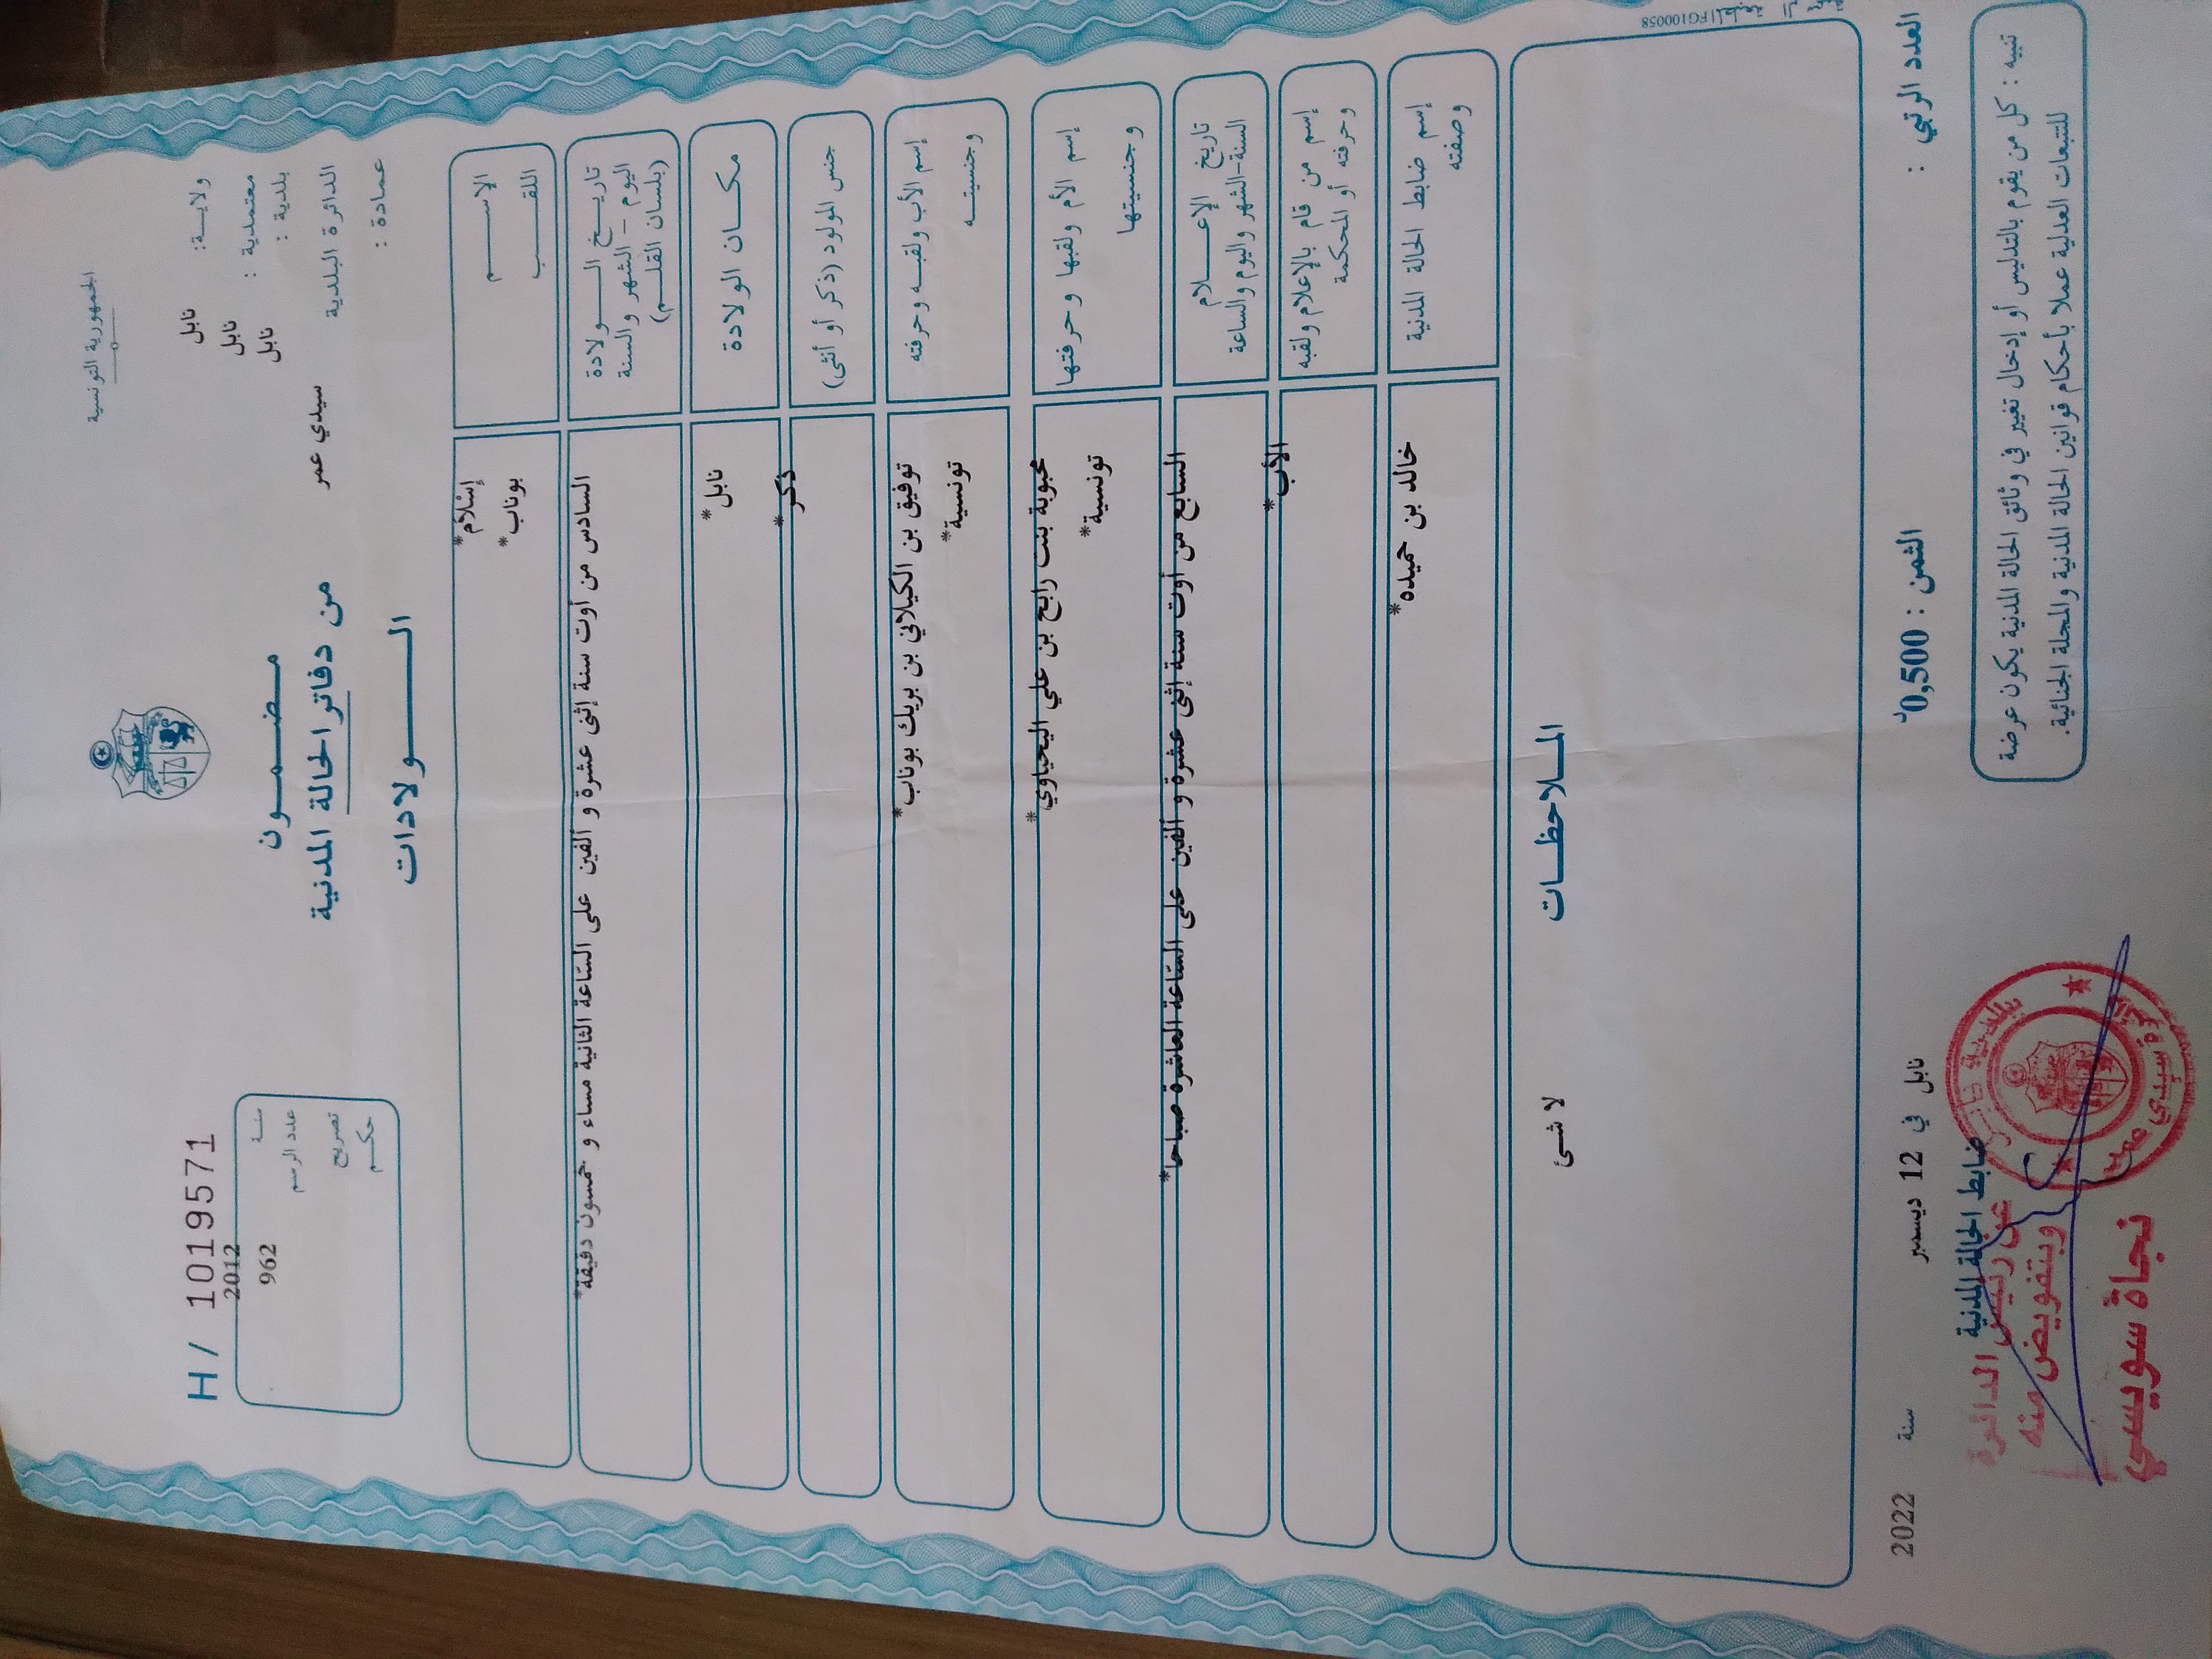 الجمهورية التونسية
ولايــة: نابل
معتمدية : نابل
بلدية : نابل
الدائرة البلدية سيدي عمر
عمادة :
مـضـمــون
من دفاتر الحالة المدنية
الــــولادات
H/ 1019571
سنــة 2012
عدد الرسم 962
تصريح
حكــم
الإســــــم
إسْلاَم*
اللقــــب
بوناب*
تاريــخ الــــولادة
اليوم – الشهر والسنة
(بلسان القلــم)
السادس من أوت سنة إثنى عشرة و ألفين على السّاعة الثانية مساء و خمسون دقيقة*
مكــان الولادة
نابل*
جنس المولود (ذكر أو أنثى)
ذكر*
إسم الأب ولقبــه وحرفته
توفيق بن الكيلاني بن بريك بوناب*
وجنسيتــه
تونسية*
إسم الأم ولقبها وحرفتها
محبوبة بنت رابح بن علي اليحياوي*
وجنسيتها
تونسية*
تاريخ الإعـــلام
السنة-الشهر واليوم والساعة
السابع من أوت سنة إثنى عشرة و ألفين على السّاعة العاشرة صباحا*
إسم من قام بالإعلام ولقبه
وحرفته أو المحكمة
الأب*
إسم ضابط الحالة المدنية
وصفته
خالد بن حميده*
المــلاحظــات
لا شئ
FG100058
العدد الرتبي :
الثمن : 0,500د
نابل في 12 ديسمبر سنة 2022
تنبيه : كل من يقوم بالتدليس أو إدخال تغيير في وثائق الحالة المدنية يكون عرضة
للتتبعات العدلية عملا بأحكام قوانين الحالة المدنية والمجلة الجنائية.
ضابط الحالة المدنية
عن رئيس الدائرة
وبتفويض منه
نجاة سويسي
بلدية نابل
دائرة سيدي عمر